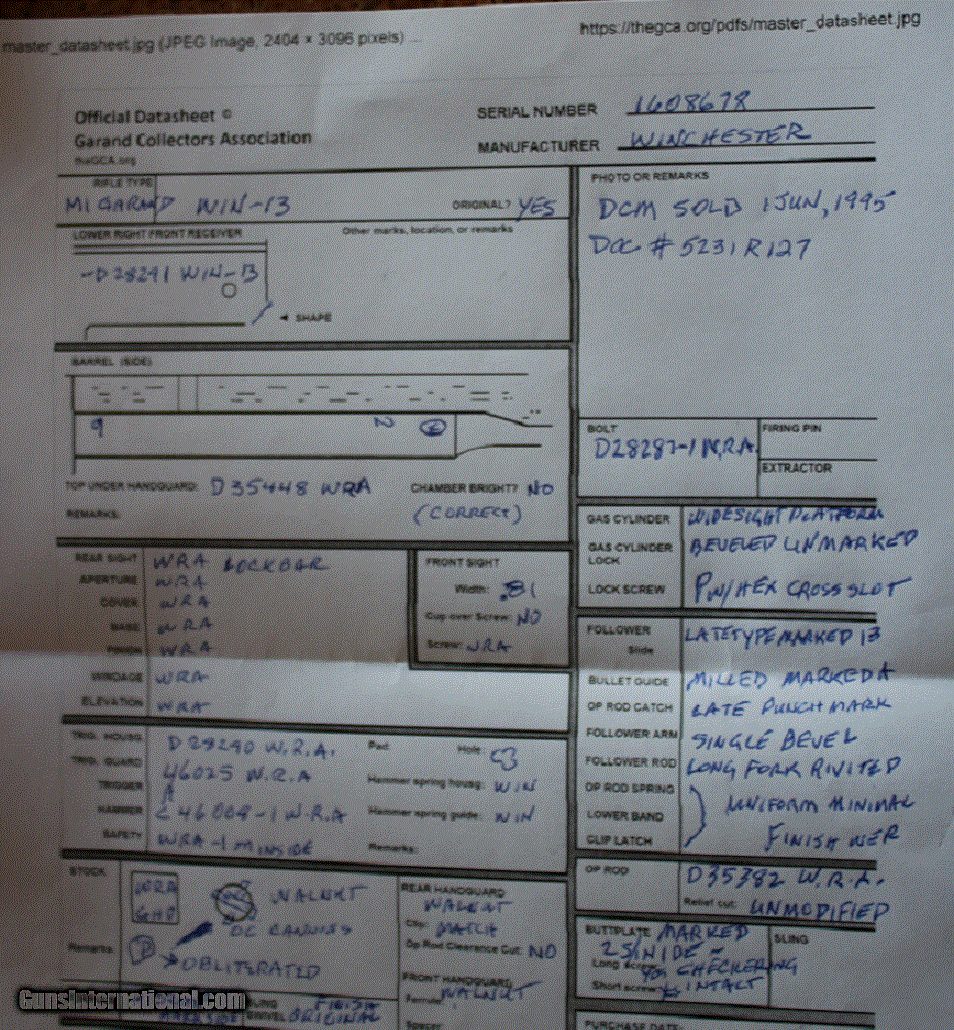 master_datasheet.jpg (JPEG Image, 2404 × 3096 pixels) ...
https://thegca.org/pdfs/master_datasheet.jpg
Official Datasheet ©
Garand Collectors Association
theGCA.org
SERIAL NUMBER 1608678
MANUFACTURER WINCHESTER
RIFLE TYPE
M1 GARAND WIN-13
ORIGINAL? YES
LOWER RIGHT FRONT RECEIVER
Other marks, location, or remarks
-D28291 WIN-13
◄ SHAPE
PHOTO OR REMARKS
DCM SOLD 1 JUN, 1995
DOC # 5231R127
BARREL (SIDE)
TOP UNDER HANDGUARD: D35448 WRA
CHAMBER BRIGHT? NO
REMARKS:
(CORRECT)
BOLT
D28287-1 W.R.A.
FIRING PIN
EXTRACTOR
GAS CYLINDER WIDESIGHT PLATFORM
GAS CYLINDER LOCK BEVELED UNMARKED
LOCK SCREW PW/HEX CROSS SLOT
REAR SIGHT WRA LOCKBAR
APERTURE WRA
COVER WRA
BASE WRA
PINION WRA
WINDAGE WRA
ELEVATION WRA
FRONT SIGHT
Width: .81
Cup over Screw: NO
Screw: WRA
FOLLOWER LATE TYPE MARKED 13
Slide
BULLET GUIDE MILLED MARKED A
OP ROD CATCH LATE PUNCH MARK
FOLLOWER ARM SINGLE BEVEL
FOLLOWER ROD LONG FORK RIVITED
OP ROD SPRING
LOWER BAND UNIFORM MINIMAL
CLIP LATCH FINISH WER
TRIG. HOUSG D28290 W.R.A.
Pad:
Hole:
TRIG. GUARD 46025 W.R.A
TRIGGER
Hammer spring housg: WIN
HAMMER C46008-1 W.R.A
Hammer spring guide: WIN
SAFETY WRA -1 INSIDE
Remarks:
STOCK
WRA
GHD
WALNUT
Remarks
OBLITERATED
REAR HANDGUARD
WALNUT
Clip: MATCH
Op Rod Clearance Cut: NO
FRONT HANDGUARD
WALNUT
Ferrule:
Spacer
SWIVEL ORIGINAL
FINISH
OP ROD
D35382 W.R.A.
Relief cut: UNMODIFIED
BUTTPLATE MARKED
SLING
Long screw
CHECKERING
Short screw
INTACT
PURCHASE DATE:
GunsInternational.com